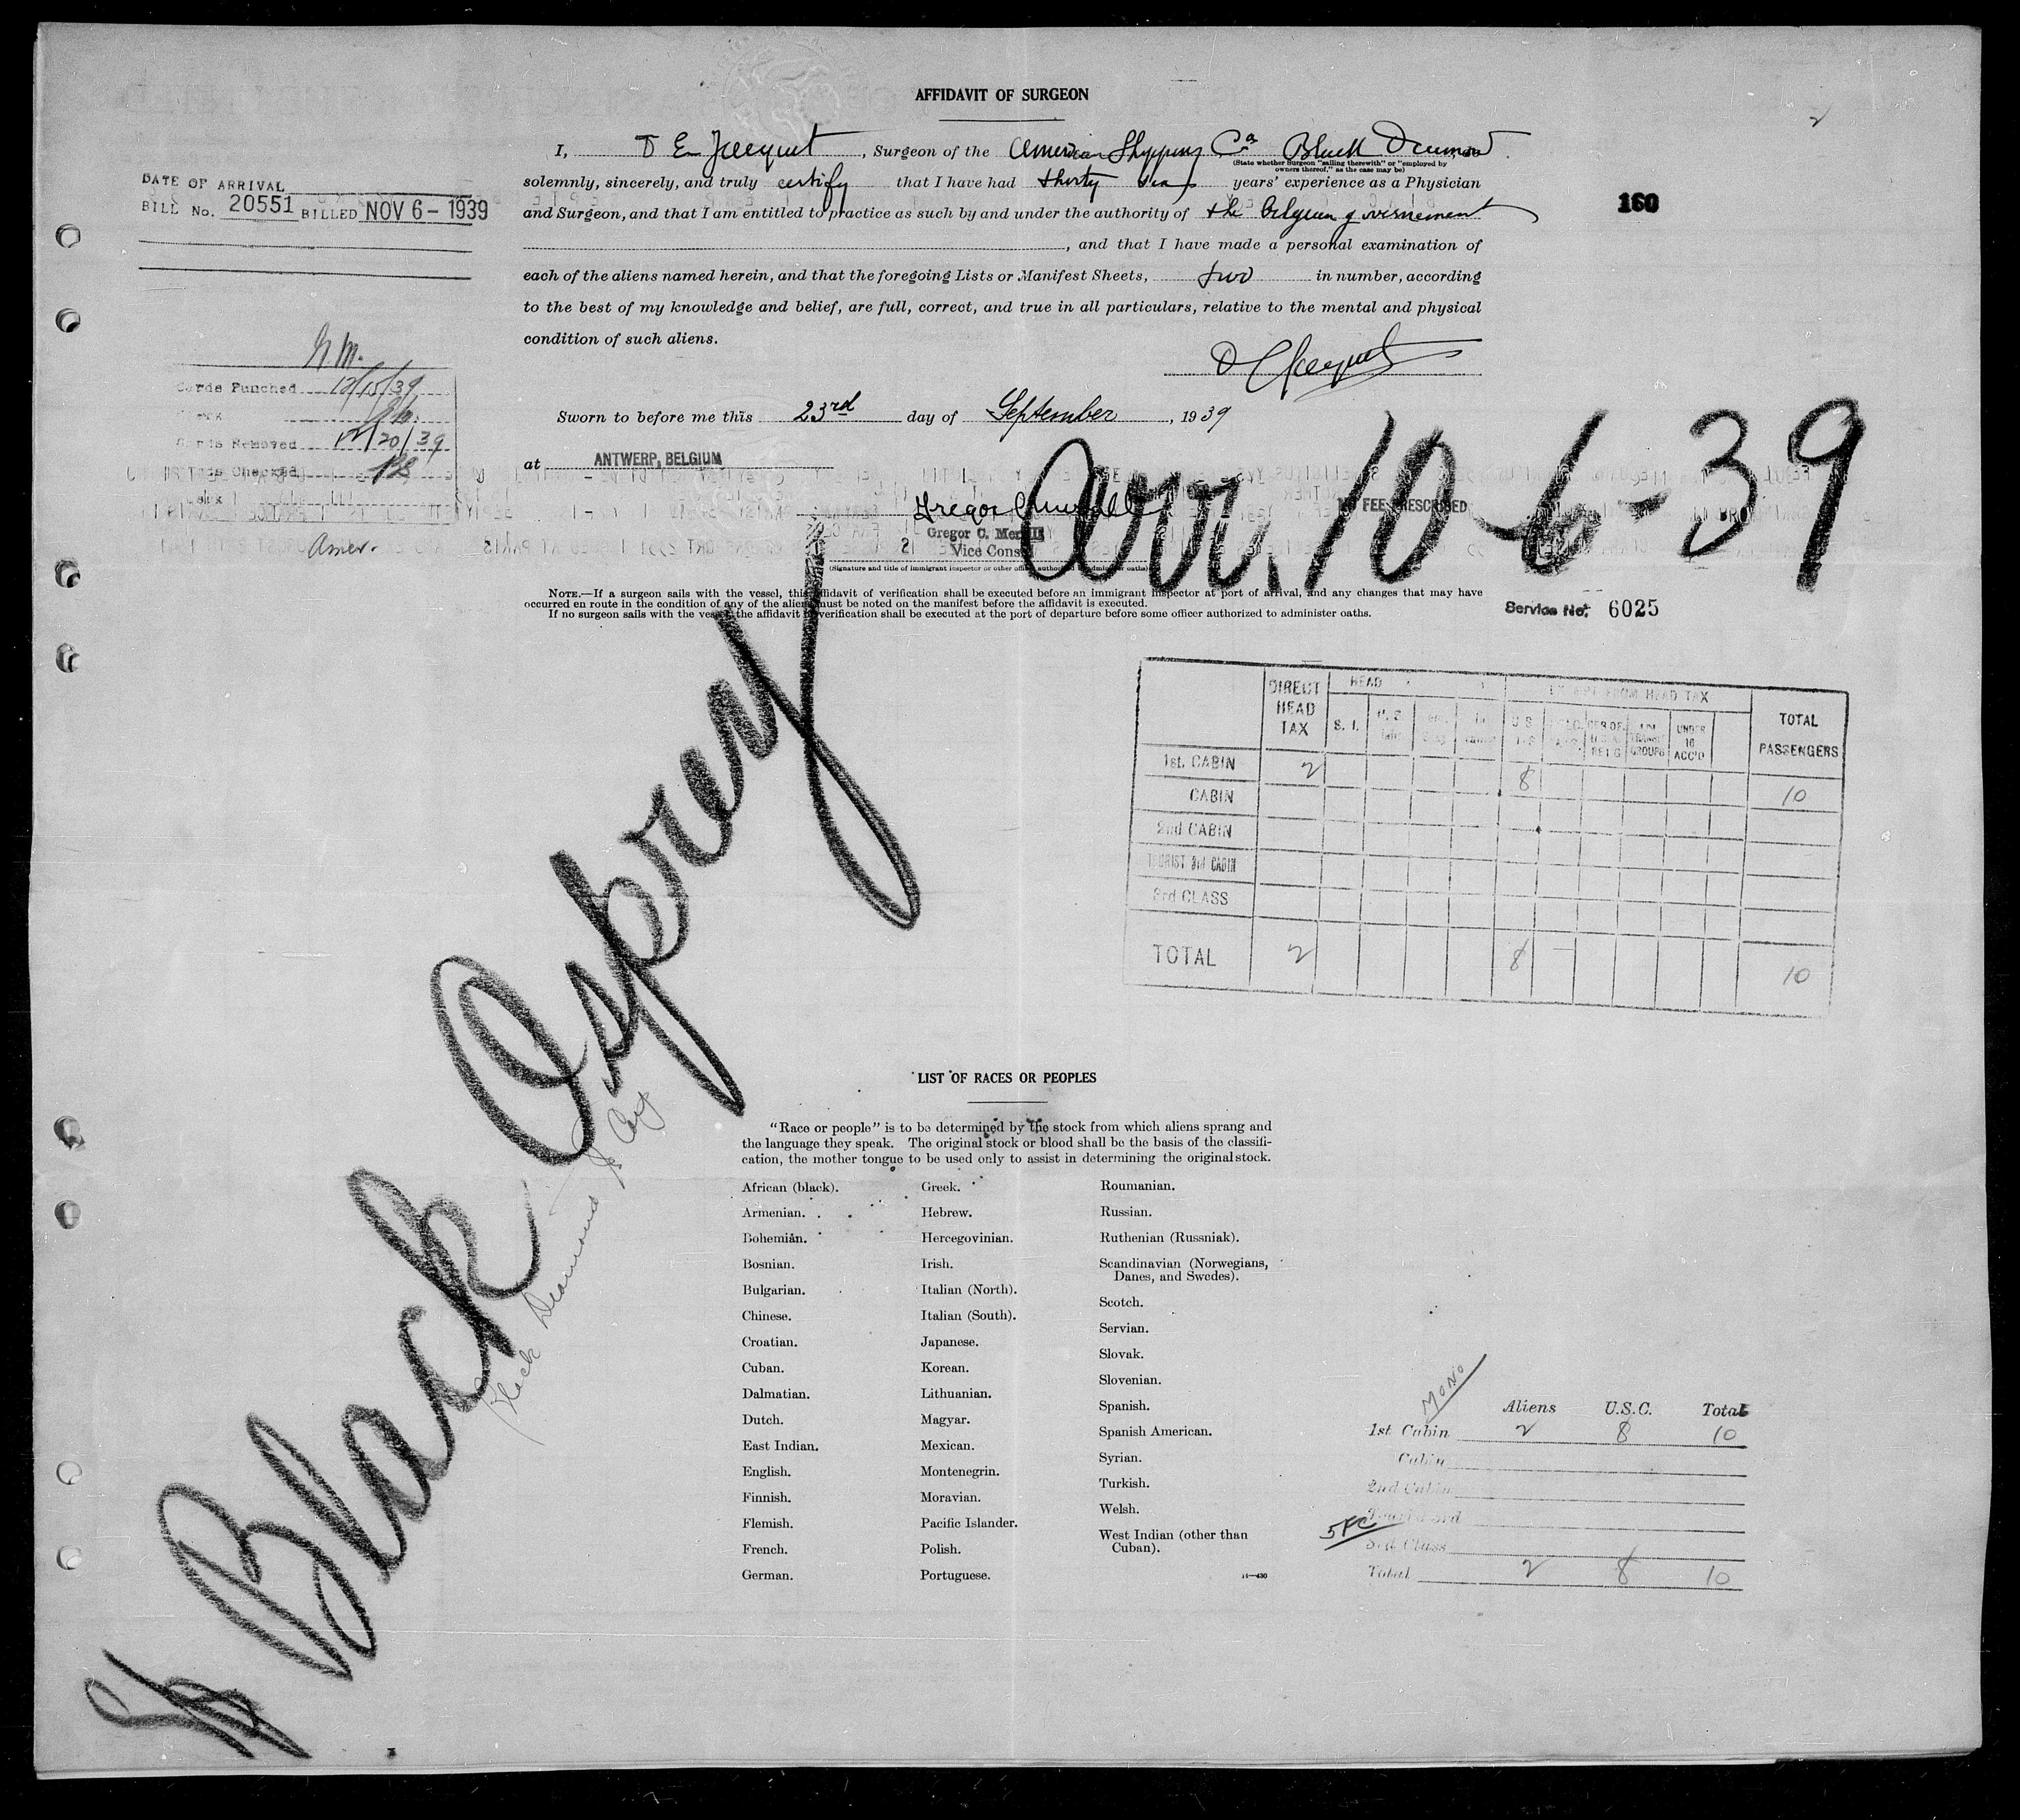 AFFIDAVIT OF SURGEON
I, D E Jacquet, Surgeon of the American Shipping Co Black Diamond
(State whether Surgeon "sailing therewith" or "employed by
owners thereof," as the case may be)
solemnly, sincerely, and truly certify that I have had thirty six years' experience as a Physician
and Surgeon, and that I am entitled to practice as such by and under the authority of the belgian governement
, and that I have made a personal examination of
each of the aliens named herein, and that the foregoing Lists or Manifest Sheets, two in number, according
to the best of my knowledge and belief, are full, correct, and true in all particulars, relative to the mental and physical
condition of such aliens.
Sworn to before me this 23rd day of September, 1939
at ANTWERP, BELGIUM
Gregor C. Merrill
Vice Consul
NO FEE PRESCRIBED
(Signature and title of immigrant inspector or other officer authorized to administer oaths)
NOTE.—If a surgeon sails with the vessel, this affidavit of verification shall be executed before an immigrant inspector at port of arrival, and any changes that may have
occurred en route in the condition of any of the aliens must be noted on the manifest before the affidavit is executed.
If no surgeon sails with the vessel the affidavit of verification shall be executed at the port of departure before some officer authorized to administer oaths.
Service No. 6025
160
2
DATE OF ARRIVAL
BILL No. 20551 BILLED NOV 6-1939
Cards Punched 12/15/39
Cards Removed 12/20/39
Cards Checked
Clerk
Amer.
Arr. 10-6-39
Black Osprey
Black Diamond
DIRECT HEAD TAX
HEAD
S. I.
EXEMPT FROM HEAD TAX
UNDER 16 ACC'D
TOTAL PASSENGERS
1st. CABIN 2 8 10
CABIN
2nd CABIN
TOURIST 3rd CABIN
3rd CLASS
TOTAL 2 8 10
LIST OF RACES OR PEOPLES
"Race or people" is to be determined by the stock from which aliens sprang and
the language they speak. The original stock or blood shall be the basis of the classifi-
cation, the mother tongue to be used only to assist in determining the original stock.
African (black).
Armenian.
Bohemian.
Bosnian.
Bulgarian.
Chinese.
Croatian.
Cuban.
Dalmatian.
Dutch.
East Indian.
English.
Finnish.
Flemish.
French.
German.
Greek.
Hebrew.
Hercegovinian.
Irish.
Italian (North).
Italian (South).
Japanese.
Korean.
Lithuanian.
Magyar.
Mexican.
Montenegrin.
Moravian.
Pacific Islander.
Polish.
Portuguese.
Roumanian.
Russian.
Ruthenian (Russniak).
Scandinavian (Norwegians,
Danes, and Swedes).
Scotch.
Servian.
Slovak.
Slovenian.
Spanish.
Spanish American.
Syrian.
Turkish.
Welsh.
West Indian (other than
Cuban).
MONO
Aliens U.S.C. Total
1st Cabin 2 8 10
Cabin
2nd Cabin
5FC
3rd Class
Total 2 8 10